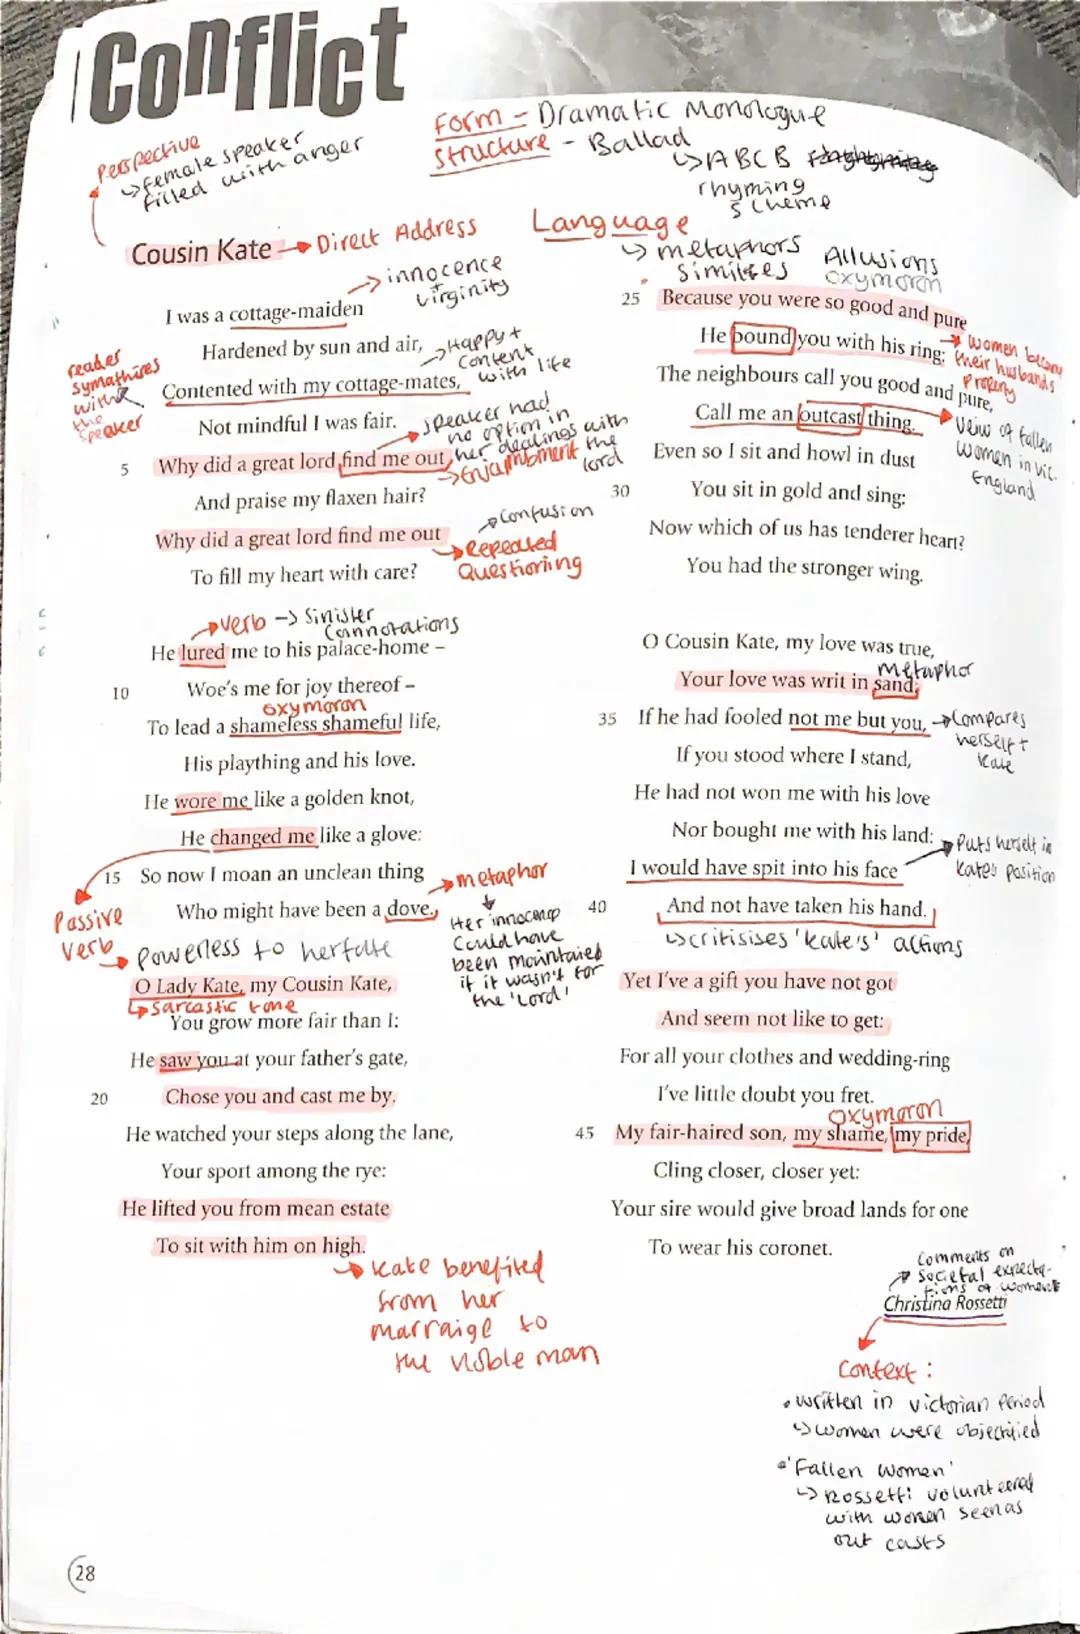 Conflict
Form - Dramatic Monologue
Structure - Ballad
↳ ABCB
rhyming
scheme
Perspective
↳ female speaker
filled with anger
Cousin Kate → Direct Address
Language
↳ metaphors
Allusions
oxymoron
→ innocence
+
virginity
I was a cottage-maiden
Hardened by sun and air,
→ Happy +
content
with life
reader
symathires
with
the
speaker
Contented with my cottage-mates,
Not mindful I was fair.
speaker had
no option in
her dealings with
the
lord
5 Why did a great lord find me out,
→ Enjambment
And praise my flaxen hair?
→ Confusion
Why did a great lord find me out
→ Repeated
Questioning
To fill my heart with care?
→ verb → Sinister
Connotations
He lured me to his palace-home –
10 Woe's me for joy thereof –
oxymoron
To lead a shameless shameful life,
His plaything and his love.
He wore me like a golden knot,
He changed me like a glove:
15 So now I moan an unclean thing
Who might have been a dove.
→ metaphor
Her innocence
Could have
been mointaied
if it wasn't for
the 'Lord'
Passive
verb
→ powerless to her fate
O Lady Kate, my Cousin Kate,
↳ Sarcastic tone
You grow more fair than I:
He saw you at your father's gate,
20 Chose you and cast me by.
He watched your steps along the lane,
Your sport among the rye:
He lifted you from mean estate
To sit with him on high.
→ Kate benefited
from her
marraige to
the noble man
25 Because you were so good and pure
He bound you with his ring:
→ women become
their husbands
Property
The neighbours call you good and pure,
Call me an outcast thing.
→ Veiw of fallen
Women in vic.
England
Even so I sit and howl in dust
30 You sit in gold and sing:
Now which of us has tenderer heart?
You had the stronger wing.
O Cousin Kate, my love was true,
metaphor
Your love was writ in sand:
35 If he had fooled not me but you,
→ Compares
herself +
Kate
If you stood where I stand,
He had not won me with his love
Nor bought me with his land:
→ Puts herself in
Kate's position
I would have spit into his face
40 And not have taken his hand.
↳ critisises 'kate's' actions
Yet I've a gift you have not got
And seem not like to get:
For all your clothes and wedding-ring
I've little doubt you fret.
oxymoron
45 My fair-haired son, my shame, my pride,
Cling closer, closer yet:
Your sire would give broad lands for one
To wear his coronet.
Comments on
societal expecta-
tions of women
Christina Rossetti
Context:
• written in victorian Period
↳ women were objectified
• 'Fallen women'
↳ Rossetti volunteered
with women seen as
out casts
28